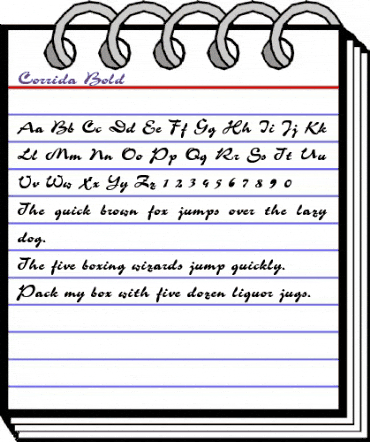 Corrida Bold
Aa Bb Cc Dd Ee Ff Gg Hh Ii Jj Kk
Ll Mm Nn Oo Pp Qq Rr Ss Tt Uu
Vv Ww Xx Yy Zz 1 2 3 4 5 6 7 8 9 0
The quick brown fox jumps over the lazy
dog.
The five boxing wizards jump quickly.
Pack my box with five dozen liquor jugs.